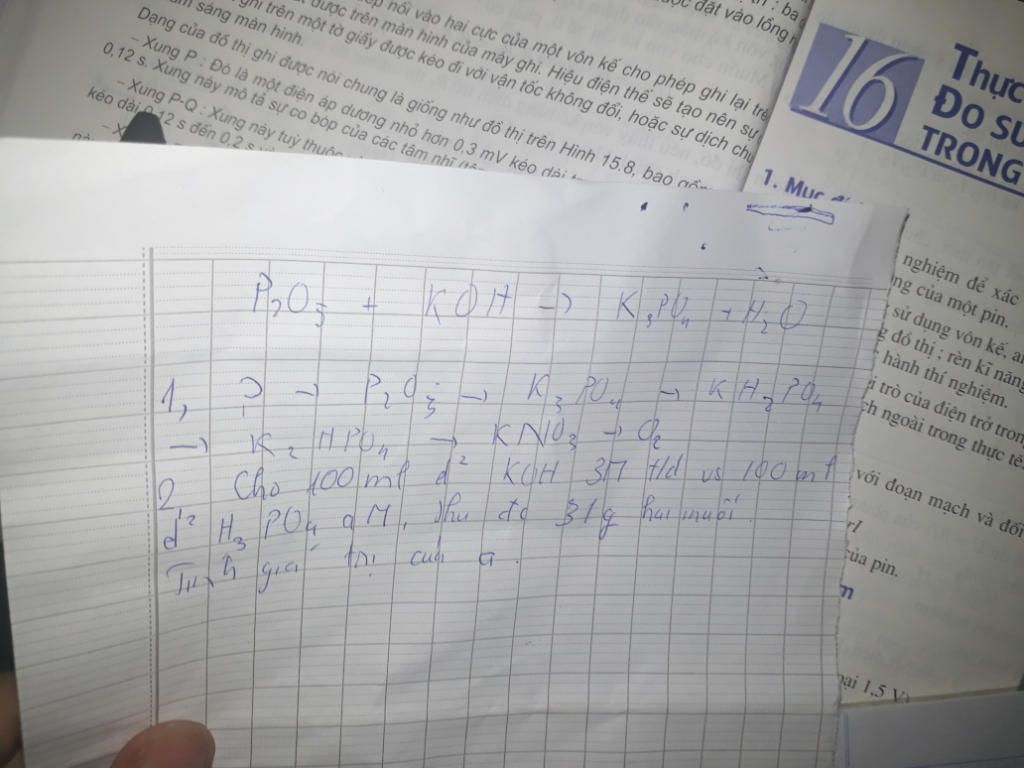 nối vào hai cực của một vôn kế cho phép ghi lại
được trên màn hình của máy ghi. Hiệu điện thế sẽ tạo nên sự
ghi trên một tờ giấy được kéo đi với vận tốc không đổi, hoặc sự dịch
sáng màn hình.
Dạng của đồ thị ghi được nói chung là giống như đồ thị trên Hình 15.8, bao gồm
– Xung P : Đó là một điện áp dương nhỏ hơn 0.3 mV kéo dài
0,12 s. Xung này mô tả sự co bóp của các tâm nhĩ
– Xung P-Q : Xung này tuỳ thuộc
kéo dài 0,12 s đến 0,2 s
được đặt vào lồng
16
Thực
ĐO SU
TRONG
1. Mục
nghiệm để xác
của một pin.
sử dụng vôn kế,
đồ thị ; rèn kĩ năng
hành thí nghiệm.
trò của điện trở trong
ngoài trong thực tế.
với đoạn mạch và
của pin.
1,5 V)
P2O5 + KOH → K3PO4 + H2O
1, ? → P2O5 → K3PO4 → KH2PO4
→ K2HPO4 → KNO3 → O2
2, Cho 100ml d² KOH 3M td vs 100ml
d² H3PO4 aM, thu đc 31g hai muối.
Tính giá trị của a.